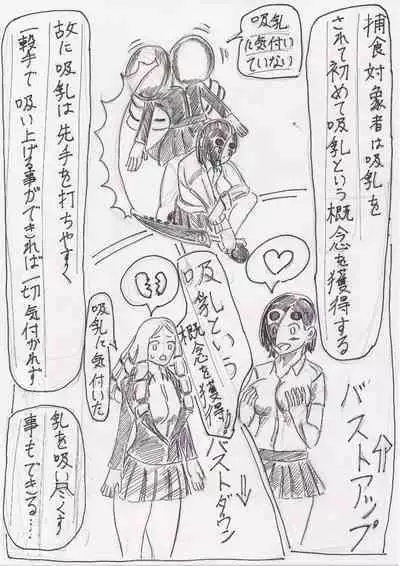 捕食対象者は吸乳を
されて初めて吸乳という概念を獲得する
吸乳
に気付い
ていない
故に吸乳は先手を打ちやすく
一撃手で吸い上げる事ができれば一切気付かれず
吸乳という
概念を獲得
バストアップ
吸乳に気付いた
バストダウン
乳を吸い尽くす
事もできる…